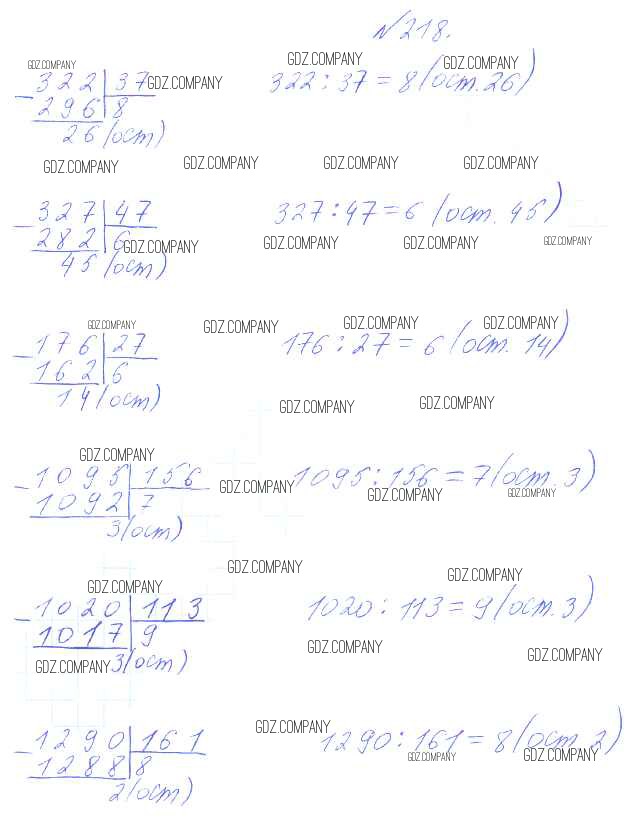 №218.
GDZ.COMPANY GDZ.COMPANY GDZ.COMPANY
322 | 37 GDZ.COMPANY 322 : 37 = 8 (ост. 26)
– 296 | 8
26 (ост)
GDZ.COMPANY GDZ.COMPANY GDZ.COMPANY GDZ.COMPANY
327 | 47 327 : 47 = 6 (ост. 45)
– 282 | 6 GDZ.COMPANY GDZ.COMPANY GDZ.COMPANY GDZ.COMPANY
45 (ост)
GDZ.COMPANY GDZ.COMPANY GDZ.COMPANY GDZ.COMPANY
176 | 27 176 : 27 = 6 (ост. 14)
– 162 | 6
14 (ост)
GDZ.COMPANY GDZ.COMPANY
GDZ.COMPANY
1095 | 156 1095 : 156 = 7 (ост. 3)
– 1092 | 7 GDZ.COMPANY GDZ.COMPANY GDZ.COMPANY
3 (ост)
GDZ.COMPANY GDZ.COMPANY GDZ.COMPANY
1020 | 113 1020 : 113 = 9 (ост. 3)
– 1017 | 9
GDZ.COMPANY 3 (ост) GDZ.COMPANY GDZ.COMPANY
GDZ.COMPANY
1290 | 161 1290 : 161 = 8 (ост. 2)
– 1288 | 8 GDZ.COMPANY GDZ.COMPANY
2 (ост)